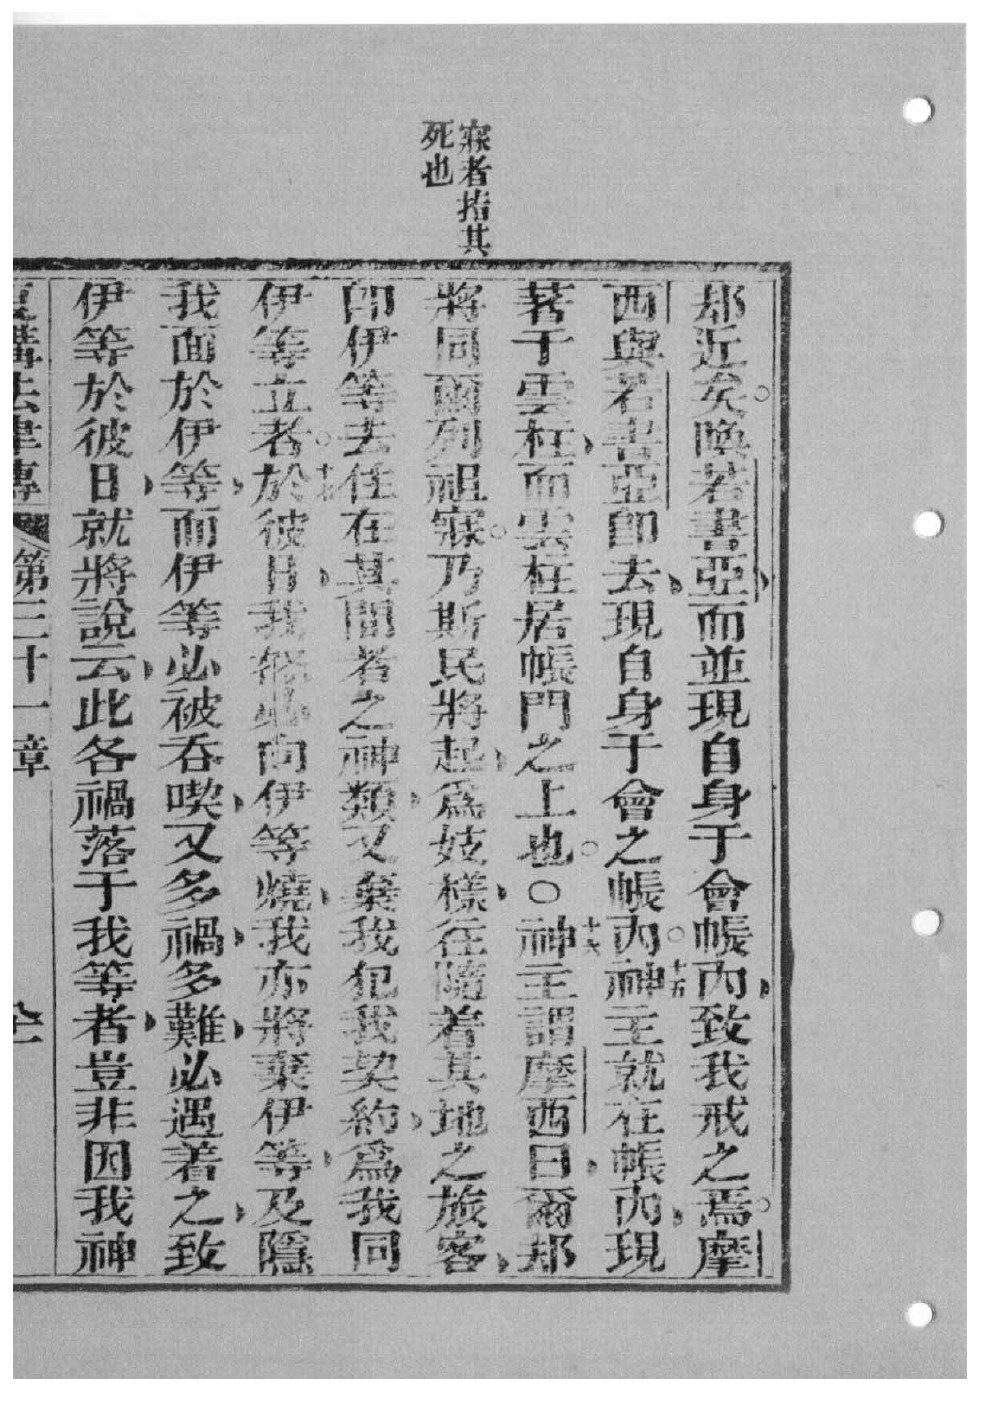 寐者指其
死也
却近矣。喚若書亞、而並現自身于會帳內、致我戒之焉。摩
西與若書亞卽去、現自身于會之帳內。十五神主就在帳內、現
著于雲柱、而雲柱居帳門之上也。○十六神主謂摩西曰、爾却
將同爾列祖寐。乃斯民將起、爲妓樣、往隨着其地之旅客、
卽伊等去住在其間者之神類、又棄我犯我契約、爲我同
伊等立者。十七於彼日、我怒必向伊等燒、我亦將棄伊等、及隱
我面於伊等、而伊等必被吞喫、又多禍、多難、必遇着之、致
伊等於彼日、就將說云、此各禍落于我等者、豈非因我神
復講法律傳 第三十一章 仝